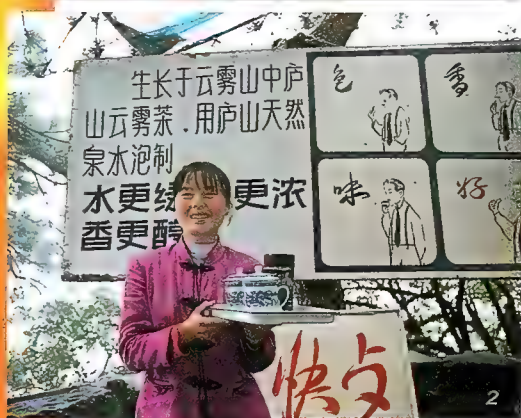 生长于云雾山中庐
山云雾茶.用庐山天然
泉水泡制
水更 更浓
香更醇
色
香
味
好
快
2